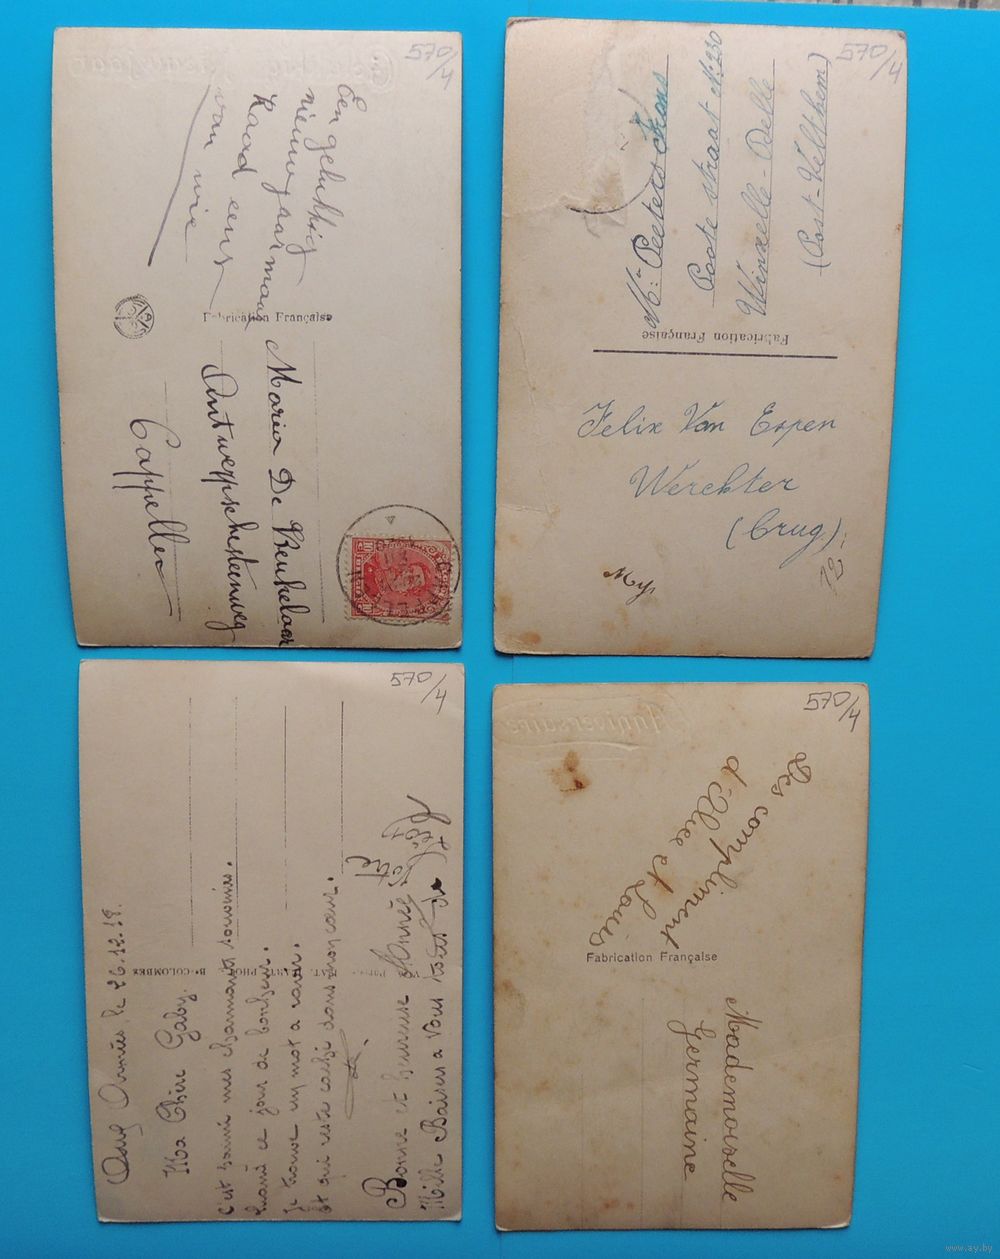 570/4
Een gelukkig
nieuwjaar maar
Raad eens
van wie
Fabrication Française
Maria De Keukelaar
Antwerpschesteenweg
Cappellen
570/4
Mr. Peeters Frans
Poote straat No: 230
Winxelle - Delle
(Post - Velthem)
Fabrication Française
Felix Van Espen
Werchter
(Brug)
12
570/4
le 26.12.18.
Ma Chère Gaby.
C'est parmi mes charmants souvenirs.
Quand ce jour de bonheur.
Je trouve un mot a ravir.
Et qui reste caché dans mon cœur.
Bonne et heureuse Année
Mille Baisers a Vous
Votre
B. COLOMBES
570/4
Anniversaire
Les compliment
d'Alice et Louis
Fabrication Française
Mademoiselle
Germaine
www.ay.by